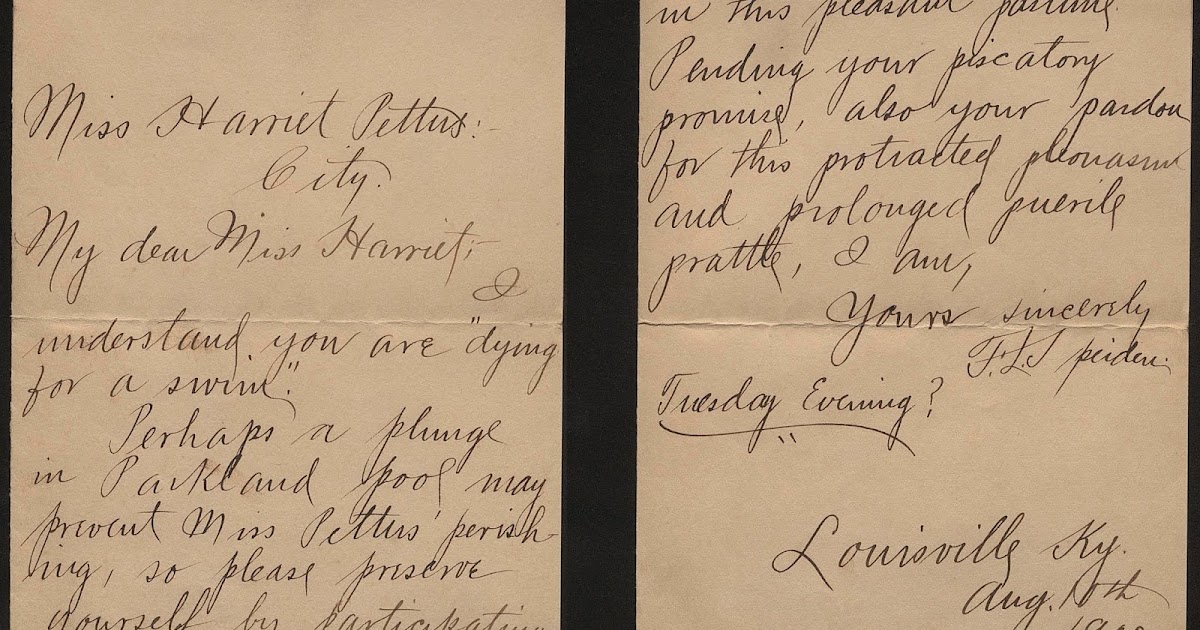 Miss Harriet Pettus:-
City.
My dear Miss Harriet;-
I
understand you are "dying
for a swim".
Perhaps a plunge
in Parkland pool may
prevent Miss Pettus' perish-
ing, so please preserve
yourself by participating
in this pleasant pastime.
Pending your piscatory
promise, also your pardon
for this protracted pleonasm
and prolonged puerile
prattle, I am,
Yours sincerely
F. L. Speiden.
Tuesday Evening?
Louisville Ky.
Aug. 10th